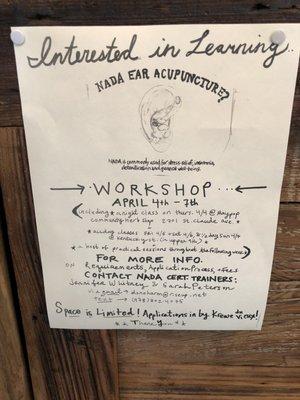 Interested in Learning
NADA EAR ACUPUNCTURE?
NADA is commonly used for stress relief, insomnia,
detoxification and general well-being.
WORKSHOP
APRIL 4th - 7th
(including a night class on thurs. 4/4 @
community herb 2201 St. Claude ave.
* all day classes Fri 4/5 + sat 4/6, & 1/2 day Sun 4/7
@ Kentucky st. (in upper 9th) *
* a host of practical sessions throughout the following week)
FOR MORE INFO.
ON Requirements, Application Process, & Fees
CONTACT NADA CERT. TRAINERS:
Jennifer Whitney & Sarah Peterson
via email →
text →
Space is Limited! Applications in by Krewe
Thank You